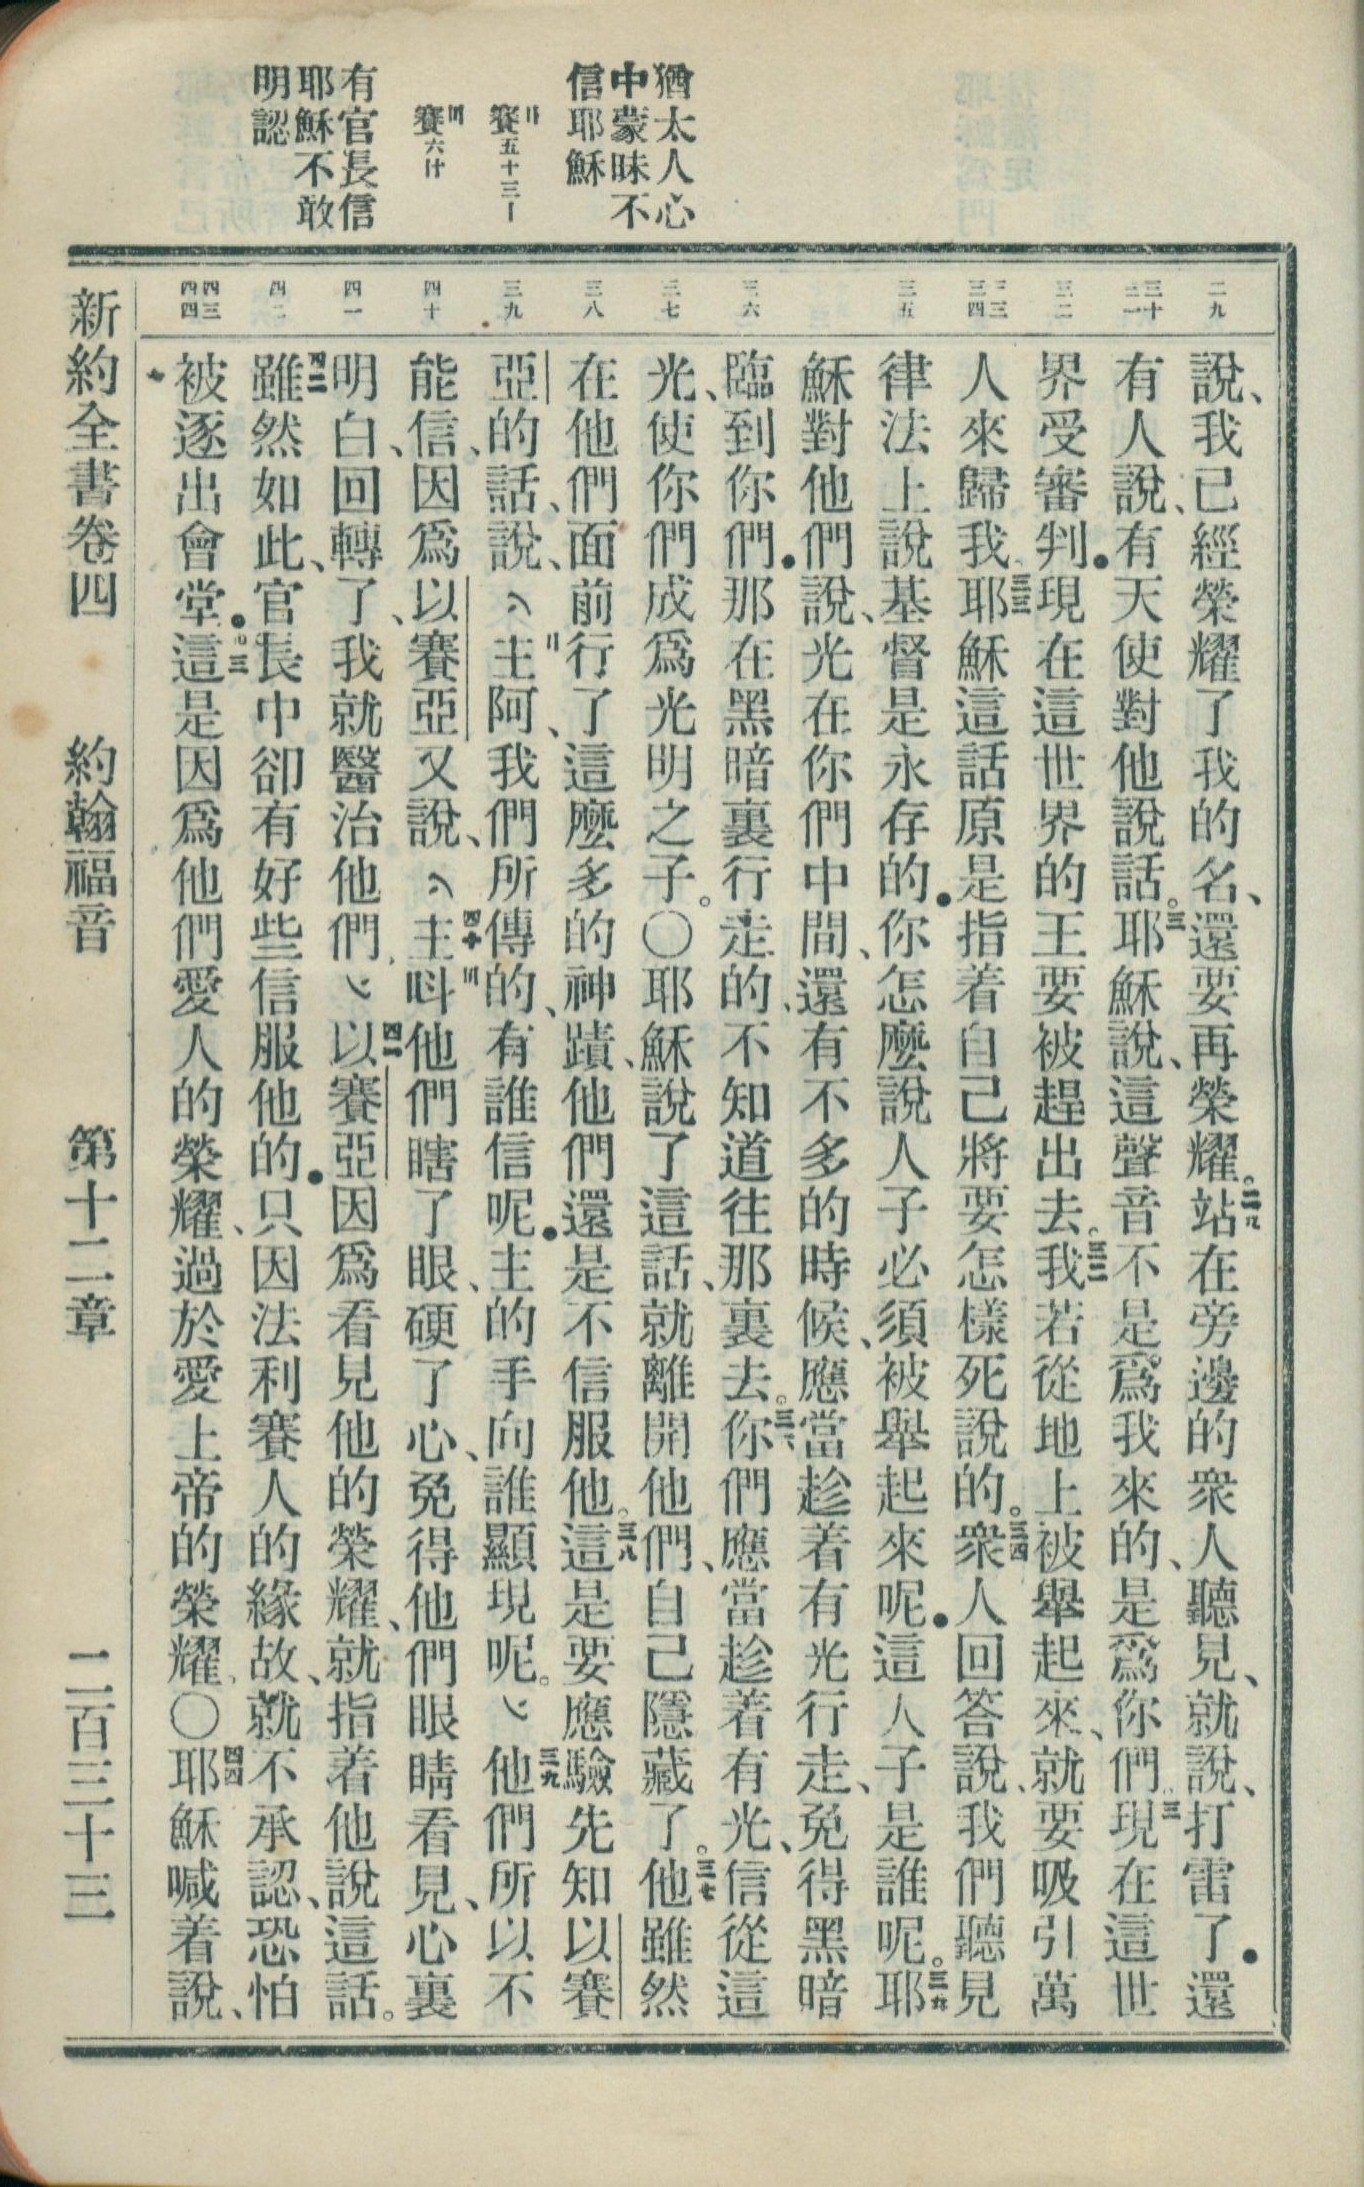 猶太人心
中蒙昧不
信耶穌
賽五十三〡
賽六〸
有官長信
耶穌不敢
明認
二九
三十
三一
三二
三三
三四
三五
三六
三七
三八
三九
四十
四一
四二
四三
四四
說、我已經榮耀了我的名、還要再榮耀。二九站在旁邊的衆人聽見、就說、打雷了．還
有人說、有天使對他說話。三十耶穌說、這聲音不是爲我來的、是爲你們。三一現在這世
界受審判．現在這世界的王要被趕出去。三二我若從地上被舉起來、就要吸引萬
人來歸我三三耶穌這話原是指着自己將要怎樣死說的。三四衆人回答說、我們聽見
律法上說基督是永存的．你怎麼說人子必須被舉起來呢．這人子是誰呢。三五耶
穌對他們說、光在你們中間、還有不多的時候、應當趁着有光行走、免得黑暗
臨到你們．那在黑暗裏行走的、不知道往那裏去。三六你們應當趁着有光、信從這
光、使你們成爲光明之子。〇耶穌說了這話、就離開他們、自己隱藏了。三七他雖然
在他們面前行了這麼多的神蹟、他們還是不信服他。三八這是要應驗先知以賽
亞的話、說、主阿、我們所傳的、有誰信呢．主的手向誰顯現呢。三九他們所以不
能信、因爲以賽亞又說、四十主呌他們瞎了眼、硬了心、免得他們眼睛看見、心裏
明白、回轉了、我就醫治他們、四一以賽亞因爲看見他的榮耀、就指着他說這話。
四二雖然如此、官長中卻有好些信服他的．只因法利賽人的緣故、就不承認、恐怕
被逐出會堂．四三這是因爲他們愛人的榮耀、過於愛上帝的榮耀〇四四耶穌喊着說、
新約全書卷四　約翰福音　第十二章　二百三十三